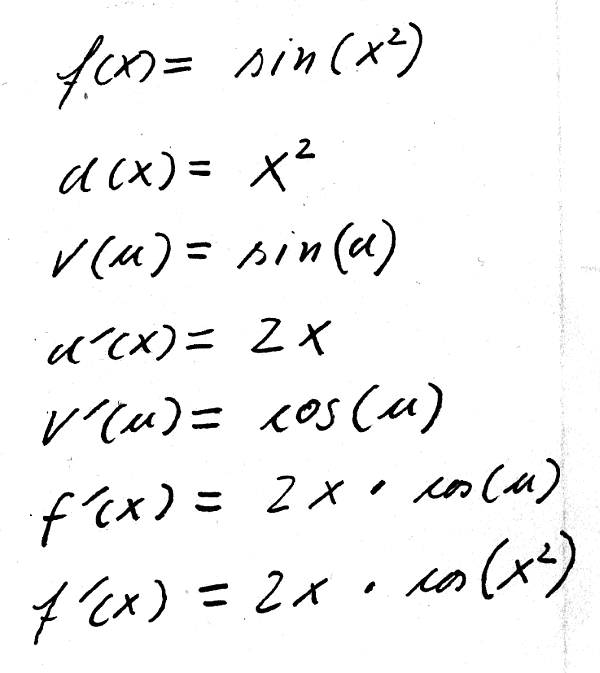 f(x) = sin(x²)
u(x) = x²
v(u) = sin(u)
u'(x) = 2x
v'(u) = cos(u)
f'(x) = 2x · cos(u)
f'(x) = 2x · cos(x²)